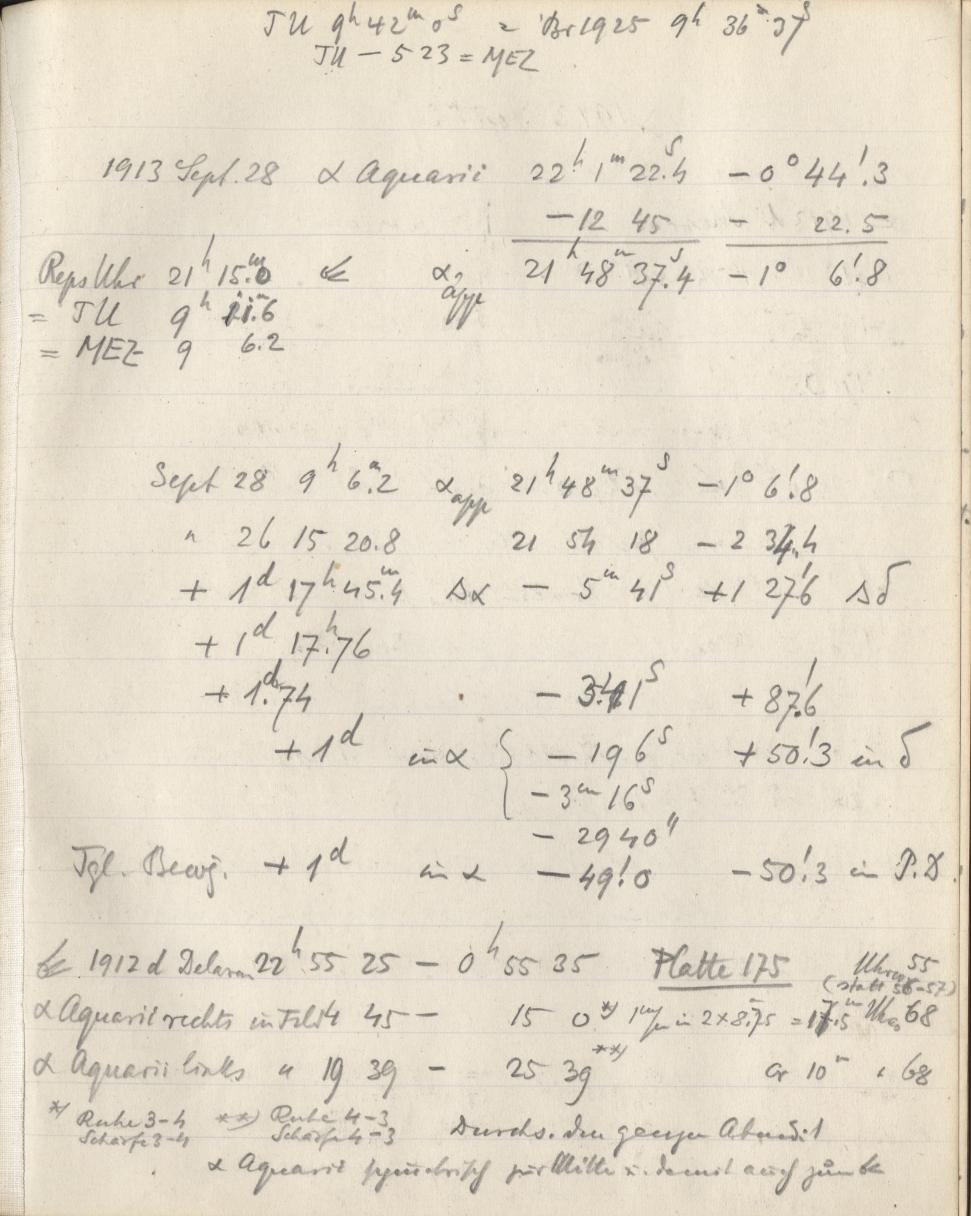 JU 9h 42m 0s = Br 1925 9h 36m 37s
JU – 5 23 = MEZ
1913 Sept. 28 α Aquarii 22h 1m 22s.4 – 0° 44!3
– 12 45 – 22.5
Reps Uhr 21h 15m.0 ☄ α app 21h 48m 37s.4 – 1° 6!8
= JU 9h 11m.6
= MEZ 9 6.2
Sept 28 9h 6m.2 αapp 21h 48m 37s – 1° 6!8
" 26 15 20.8 21 54 18 – 2 34.4
+ 1d 17h 45m.4 Δα – 5m 41s + 1 27!6 Δδ
+ 1d 17h.76
+ 1d.74 – 341s + 87!6
+ 1d in α { – 196s + 50!3 in δ
– 3m 16s
– 2940"
Tgl. Beweg. + 1d in α – 49!0 – 50!3 in P.D.
☄ 1912 d Delavan 22h 55 25 – 0h 55 35 Platte 175 Uhren 55
(statt 56–57)
α Aquarii rechts in Feld 4 45 – 15 0 *) 1m/m in 2 × 8.75 = 17m.5 Uhr 68
α Aquarii links " 19 39 – 25 39 **) ar 10m " 68
*) Ruhe 3–4 **) Ruhe 4–3
Schärfe 3–4 Schärfe 4–3 Durchs. den ganzen Abend 1
α Aquarii symmetrisch zur Mitte u. damit auch zum ☄